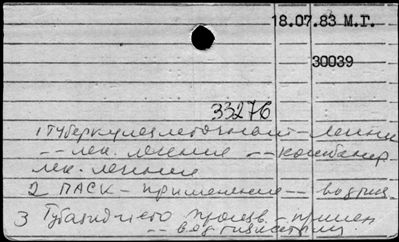 18.07.83 М.Г.
30039
33276
1 Туберкулез легочный - лечен
-- лек. лечение -- комбинир
лек. лечение
2 ПАСК - применение --
3 Тубазид и его произв. - примен